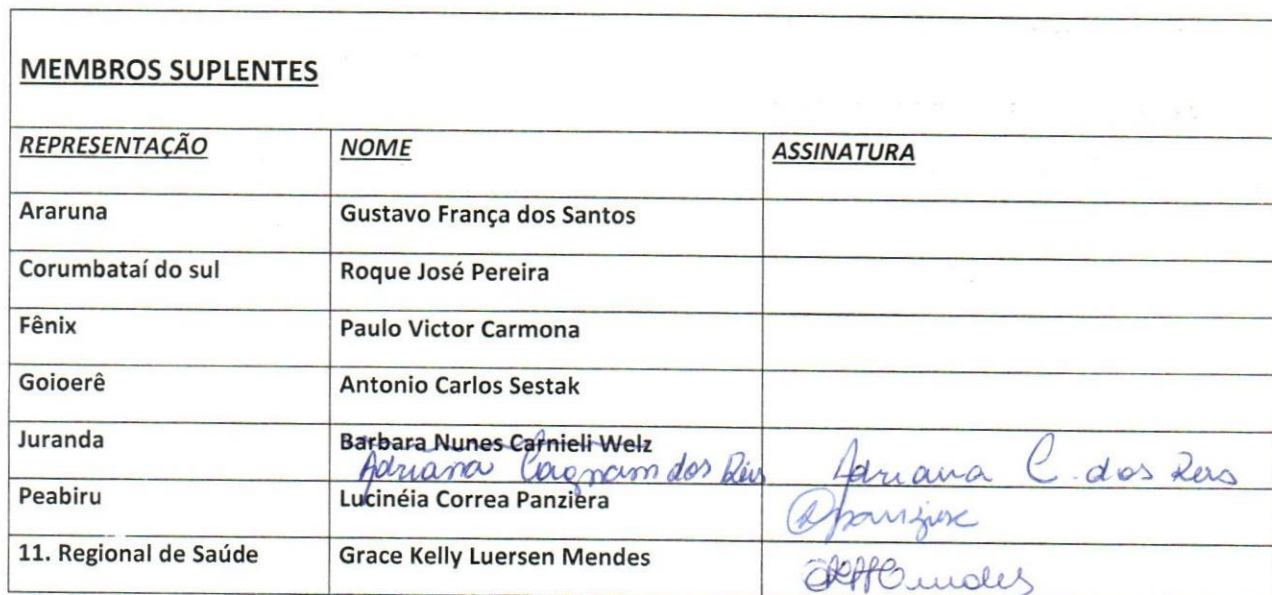 MEMBROS SUPLENTES
REPRESENTAÇÃO NOME ASSINATURA
Araruna Gustavo França dos Santos
Corumbataí do sul Roque José Pereira
Fênix Paulo Victor Carmona
Goioerê Antonio Carlos Sestak
Juranda Barbara Nunes Carnieli Welz
Adriana dos Reis Adriana C. dos Reis
Peabiru Lucinéia Correa Panziera
11. Regional de Saúde Grace Kelly Luersen Mendes